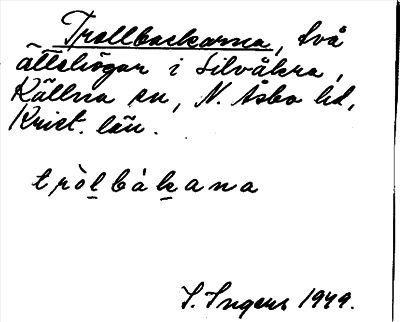 Trollbackarna, två
ättehögar i Silvåkra,
Källna sn, N. Åsbo hd,
Krist. län.
tròlbàkana
I. Ingers 1949.